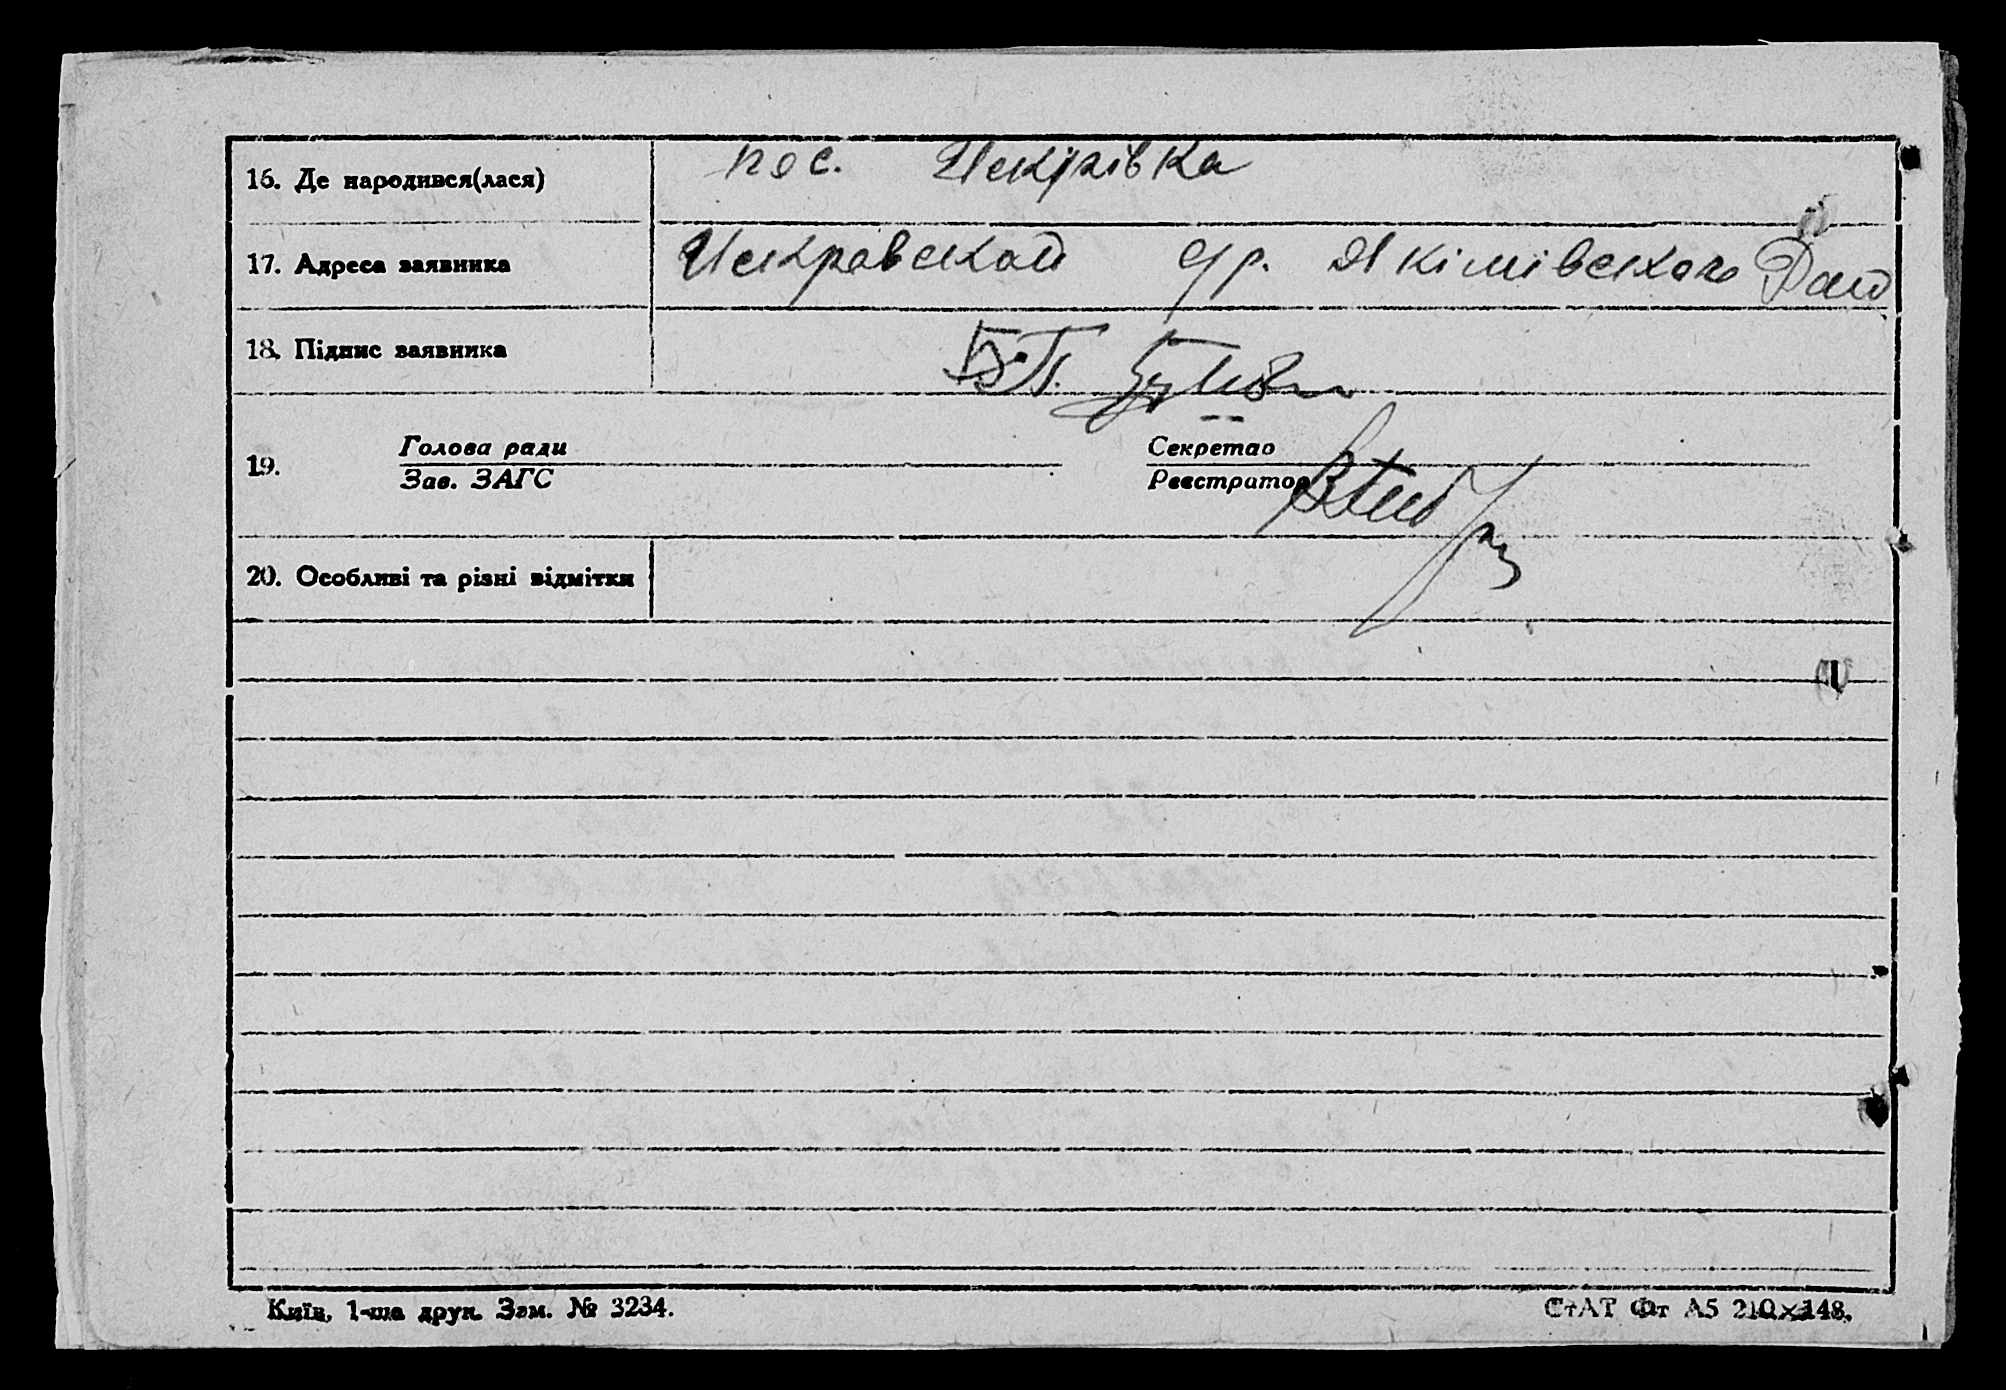 16. Де народився(лася) пос.
17. Адреса заявника Искравской с/р. Якімівského Рай
18. Підпис заявника Б.П.
Голова ради Секретар
19.
Зав. ЗАГС Реєстратор
20. Особливі та різні відмітки
Київ, 1-ша друк. Зам. № 3234. СтАТ Фт А5 210×148.